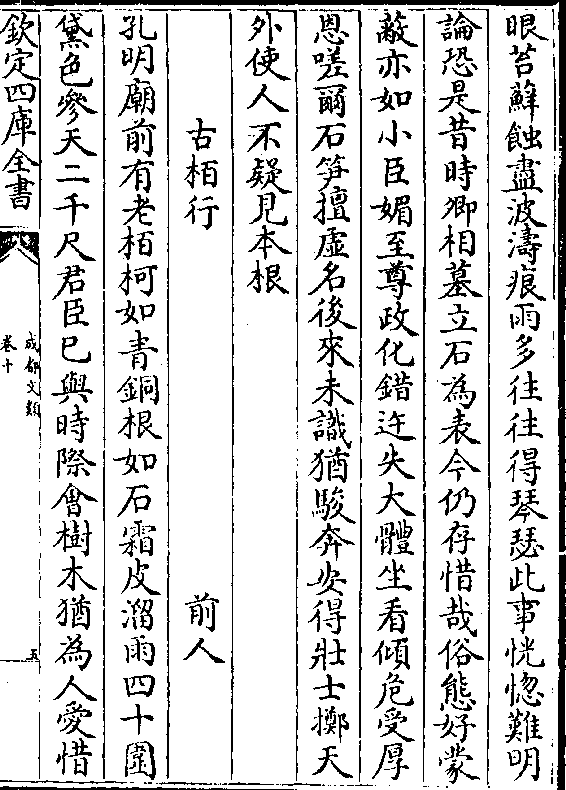 眼苔蘚蝕盡波濤痕雨多往往得琴瑟此事恍惚難明
論恐是昔時卿相墓立石為表今仍存惜哉俗態好蒙
蔽亦如小臣媚至尊政化錯迕失大體坐看傾危受厚
恩嗟爾石笋擅虛名後來未識猶駿奔安得壯士擲天
外使人不疑見本根
古栢行 前人
孔明廟前有老栢柯如青銅根如石霜皮溜雨四十圍
黛色參天二千尺君臣已與時際會樹木猶為人愛惜
欽定四庫全書
成都文類
卷十
五